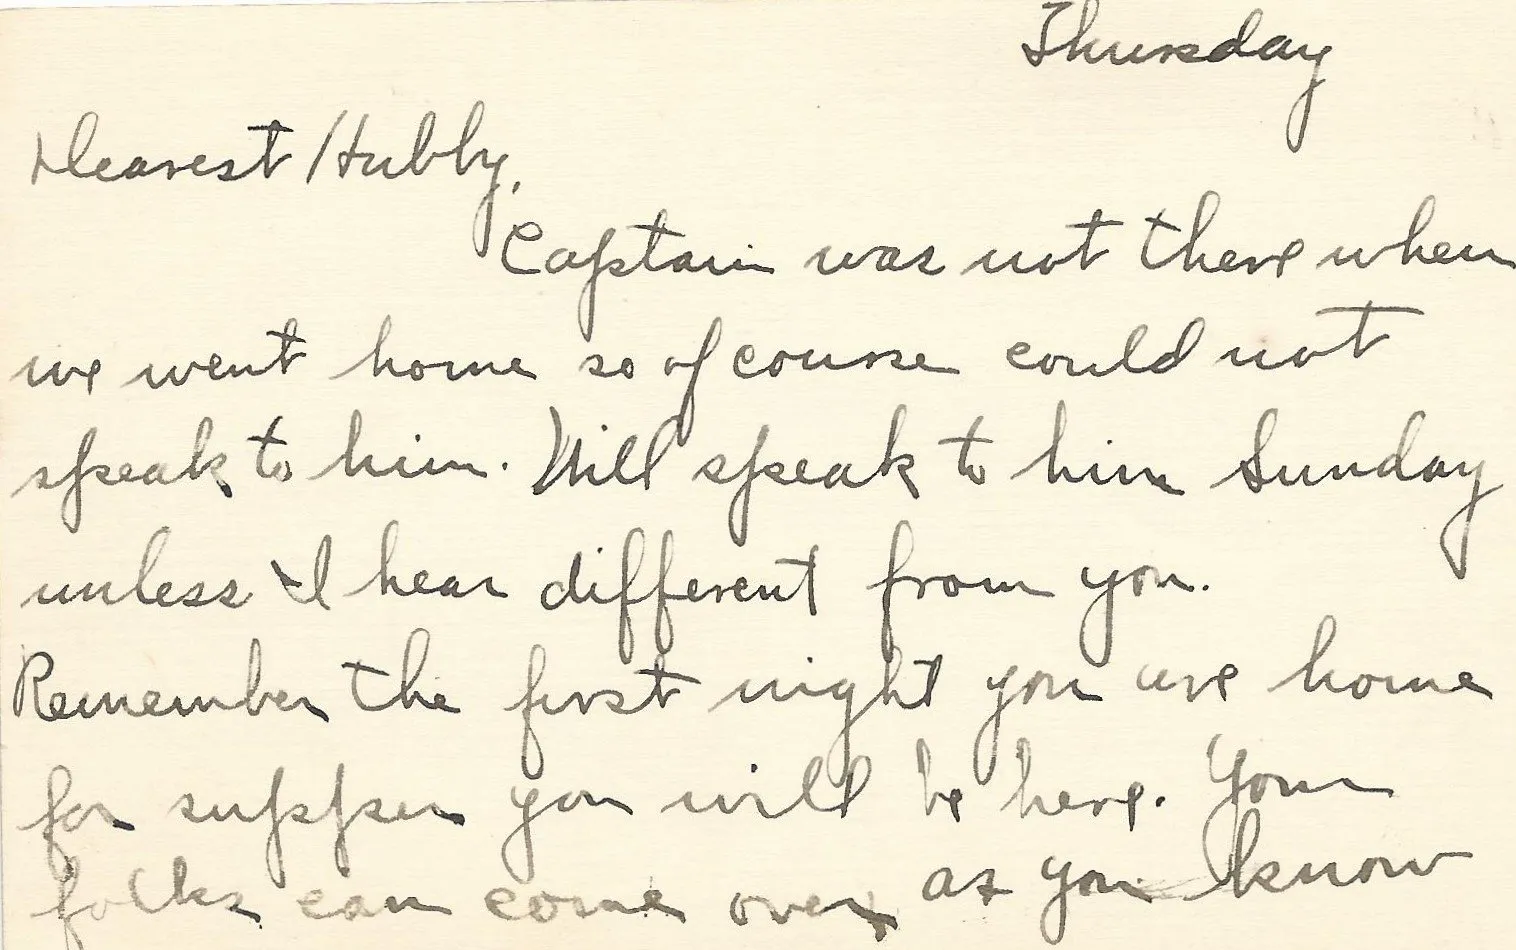 Thursday
Dearest Hubby,
Captain was not there when
we went home so of course could not
speak to him. Will speak to him Sunday
unless I hear different from you.
Remember the first night you are home
for supper you will be here. Your
folks can come over as you know